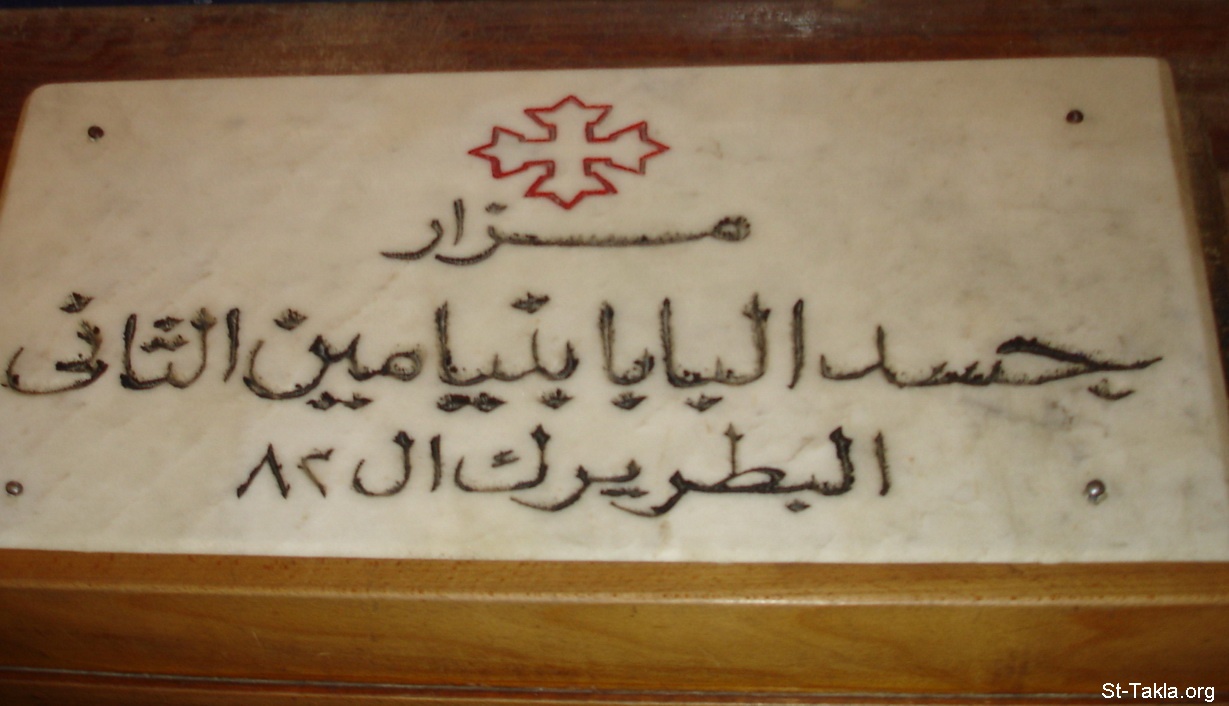 مزار
جسد البابا بنيامين الثانى
البطريرك ال ٨٢
St-Takla.org